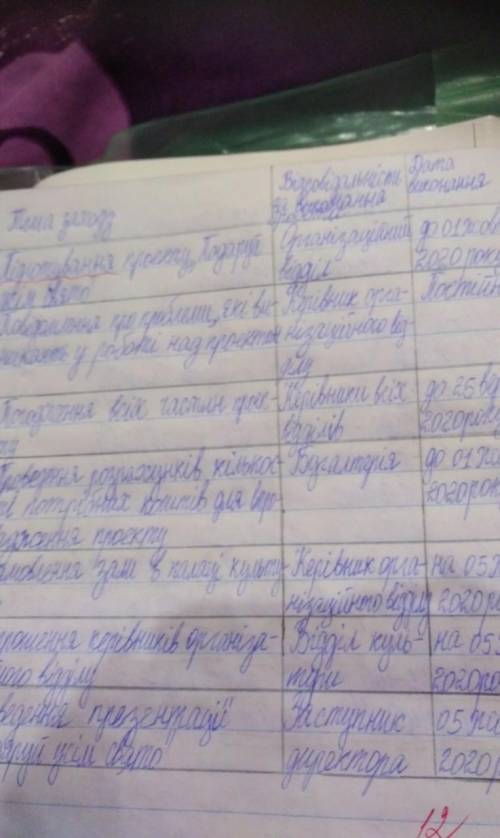 Тема заходу
Відповідальність
за виконання
Дата
виконання
Підготування проекту „Подаруй
усім свято
Організаційний
відділ
до 01 жов
2020 року
Повідомлення про проблеми, які ви-
никають у роботі над проектом
Керівник орга-
нізаційного від-
ділу
Постійн
Погодження всіх частин проек-
ту
Керівники всіх
відділів
до 25 ве
2020 рок
Проведення розрахунків кількос-
ті потрібних коштів для впро-
вадження проекту
Бухгалтерія
до 01
2020 рок
мовлення зали в палаці культу-
Керівник орга-
нізаційного відділу
на 05
2020 ро
рошення керівників організа-
ного відділу
Відділ куль-
тури
на 05
2020 ро
ведення презентації
аруй усім свято
Заступник
директора
05
2020 р
12